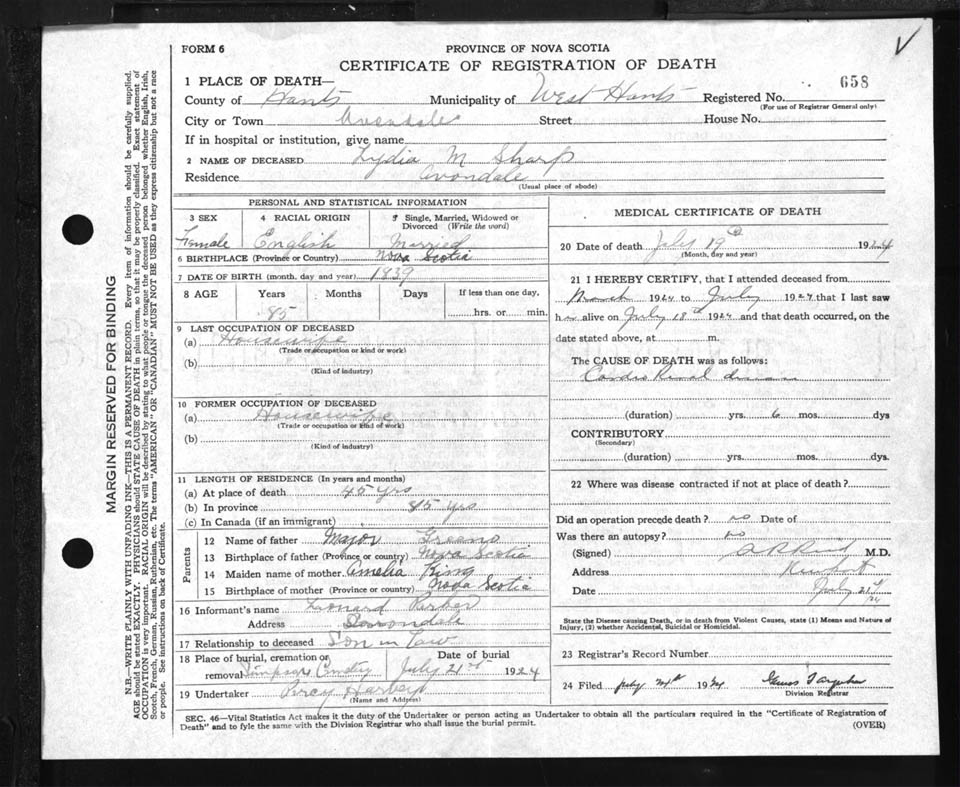 FORM 6
PROVINCE OF NOVA SCOTIA
CERTIFICATE OF REGISTRATION OF DEATH
658
1 PLACE OF DEATH—
County of Hants Municipality of West Hants Registered No.
(For use of Registrar General only)
City or Town Avondale Street House No.
If in hospital or institution, give name
2 NAME OF DECEASED Lydia M Sharp
Residence Avondale
(Usual place of abode)
PERSONAL AND STATISTICAL INFORMATION
3 SEX 4 RACIAL ORIGIN 5 Single, Married, Widowed or Divorced (Write the word)
Female English Married
6 BIRTHPLACE (Province or Country) Nova Scotia
7 DATE OF BIRTH (month, day and year) 1839
8 AGE Years Months Days If less than one day,
85 hrs. or min.
9 LAST OCCUPATION OF DECEASED
(a) Housewife
(Trade or occupation or kind or work)
(b)
(Kind of industry)
10 FORMER OCCUPATION OF DECEASED
(a) Housewife
(Trade or occupation or kind of work)
(b)
(Kind of industry)
11 LENGTH OF RESIDENCE (In years and months)
(a) At place of death 45 yrs
(b) In province 85 yrs
(c) In Canada (if an immigrant)
Parents
12 Name of father Major Greeno
13 Birthplace of father (Province or country) Nova Scotia
14 Maiden name of mother Amelia King
15 Birthplace of mother (Province or country) Nova Scotia
16 Informant's name Leonard
Address Avondale
17 Relationship to deceased Son in Law
18 Place of burial, cremation or removal Date of burial
Cemetry July 21st 1924
19 Undertaker Percy
(Name and Address)
MEDICAL CERTIFICATE OF DEATH
20 Date of death July 19th 1924
(Month, day and year)
21 I HEREBY CERTIFY, that I attended deceased from
March 1924 to July 1924 that I last saw
her alive on July 18th 1924 and that death occurred, on the
date stated above, at m.
The CAUSE OF DEATH was as follows:
Cardio Renal disease
(duration) yrs. 6 mos. dys
CONTRIBUTORY
(Secondary)
(duration) yrs. mos. dys.
22 Where was disease contracted if not at place of death?
Did an operation precede death? no Date of
Was there an autopsy? no
(Signed) M.D.
Address
Date July 21st 24
State the Disease causing Death, or in death from Violent Causes, state (1) Means and Nature of
Injury, (2) whether Accidental, Suicidal or Homicidal.
23 Registrar's Record Number
24 Filed July 1924
Division Registrar
SEC. 46—Vital Statistics Act makes it the duty of the Undertaker or person acting as Undertaker to obtain all the particulars required in the "Certificate of Registration of
Death" and to fyle the same with the Division Registrar who shall issue the burial permit.
(OVER)
MARGIN RESERVED FOR BINDING
N.B.—WRITE PLAINLY WITH UNFADING INK—THIS IS A PERMANENT RECORD. Every item of information should be carefully supplied.
AGE should be stated EXACTLY. PHYSICIANS should STATE CAUSE OF DEATH in plain terms, so that it may be properly classified. Exact statement of
OCCUPATION is very important. RACIAL ORIGIN will be described by stating to what people or tongue the deceased person belonged whether English, Irish,
Scotch, French, German, Russian, Ruthenian, etc. The terms "AMERICAN" OR "CANADIAN" MUST NOT BE USED as they express citizenship but not a race
or people. See instructions on back of Certificate.